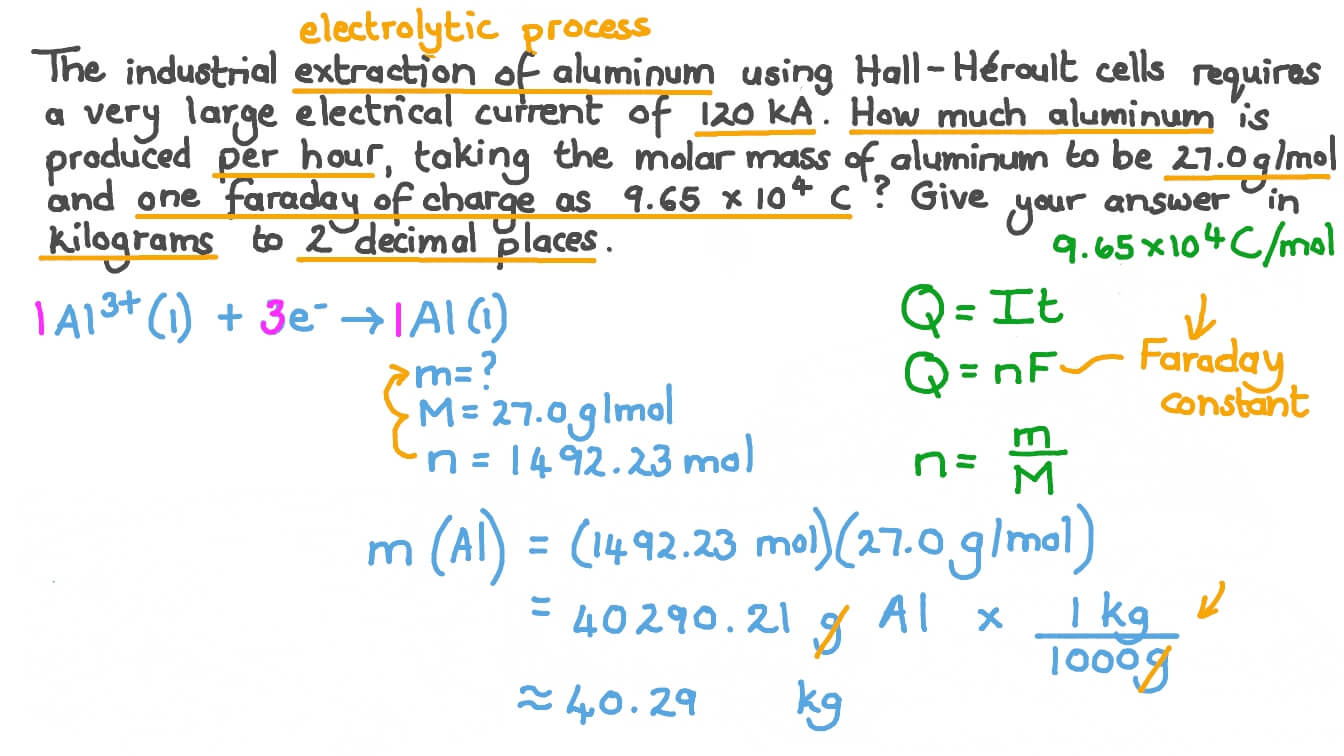 electrolytic process
The industrial extraction of aluminum using Hall-Héroult cells requires
a very large electrical current of 120 kA. How much aluminum is
produced per hour, taking the molar mass of aluminum to be 27.0 g/mol
and one faraday of charge as 9.65 × 10⁴ C? Give your answer in
kilograms to 2 decimal places.
9.65×10⁴ C/mol
1Al³⁺(l) + 3e⁻ → 1Al(l)
Q = It
Q = nF
Faraday
constant
m = ?
M = 27.0 g/mol
n = 1492.23 mol
n = m/M
m (Al) = (1492.23 mol)(27.0 g/mol)
= 40290.21 g Al × 1 kg/1000g
≈ 40.29 kg